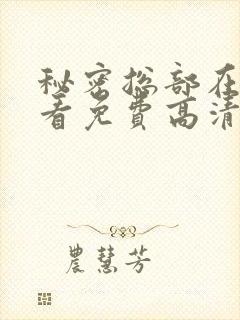 秘密总部在
看免费高清
農慧芳